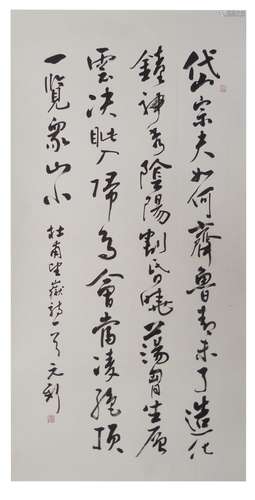 岱宗夫如何齊魯青未了造化
鍾神秀陰陽割昏曉蕩胷生層
雲決眥入歸鳥會當凌絕頂
一覽衆山小
杜甫望嶽詩一首